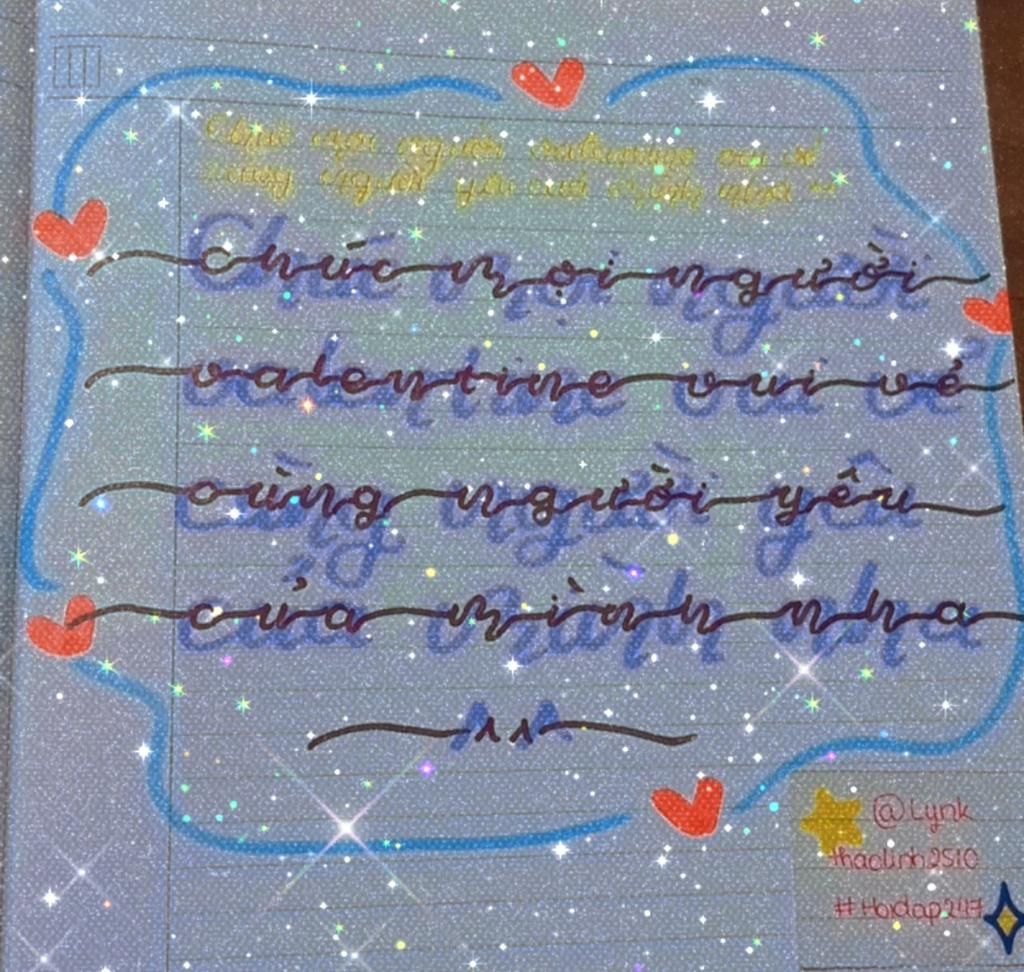 Chúc mọi người valentine vui vẻ
cùng người yêu của mình nha ^^
Chúc mọi người
valentine vui vẻ
cùng người yêu
của mình nha
^^
@Lynk
thaolinh2510
#Hoidap247